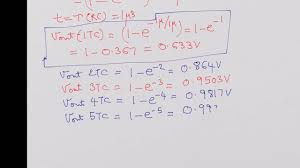 t = T(RC) = 1μs
Vout (1TC) = (1-e^-1μ/1μ) = 1-e^-1
= 1-0.367 = 0.633V
Vout 2TC = 1-e^-2 = 0.864V
Vout 3TC = 1-e^-3 = 0.9503V
Vout 4TC = 1-e^-4 = 0.9817V
Vout 5TC = 1-e^-5 = 0.99